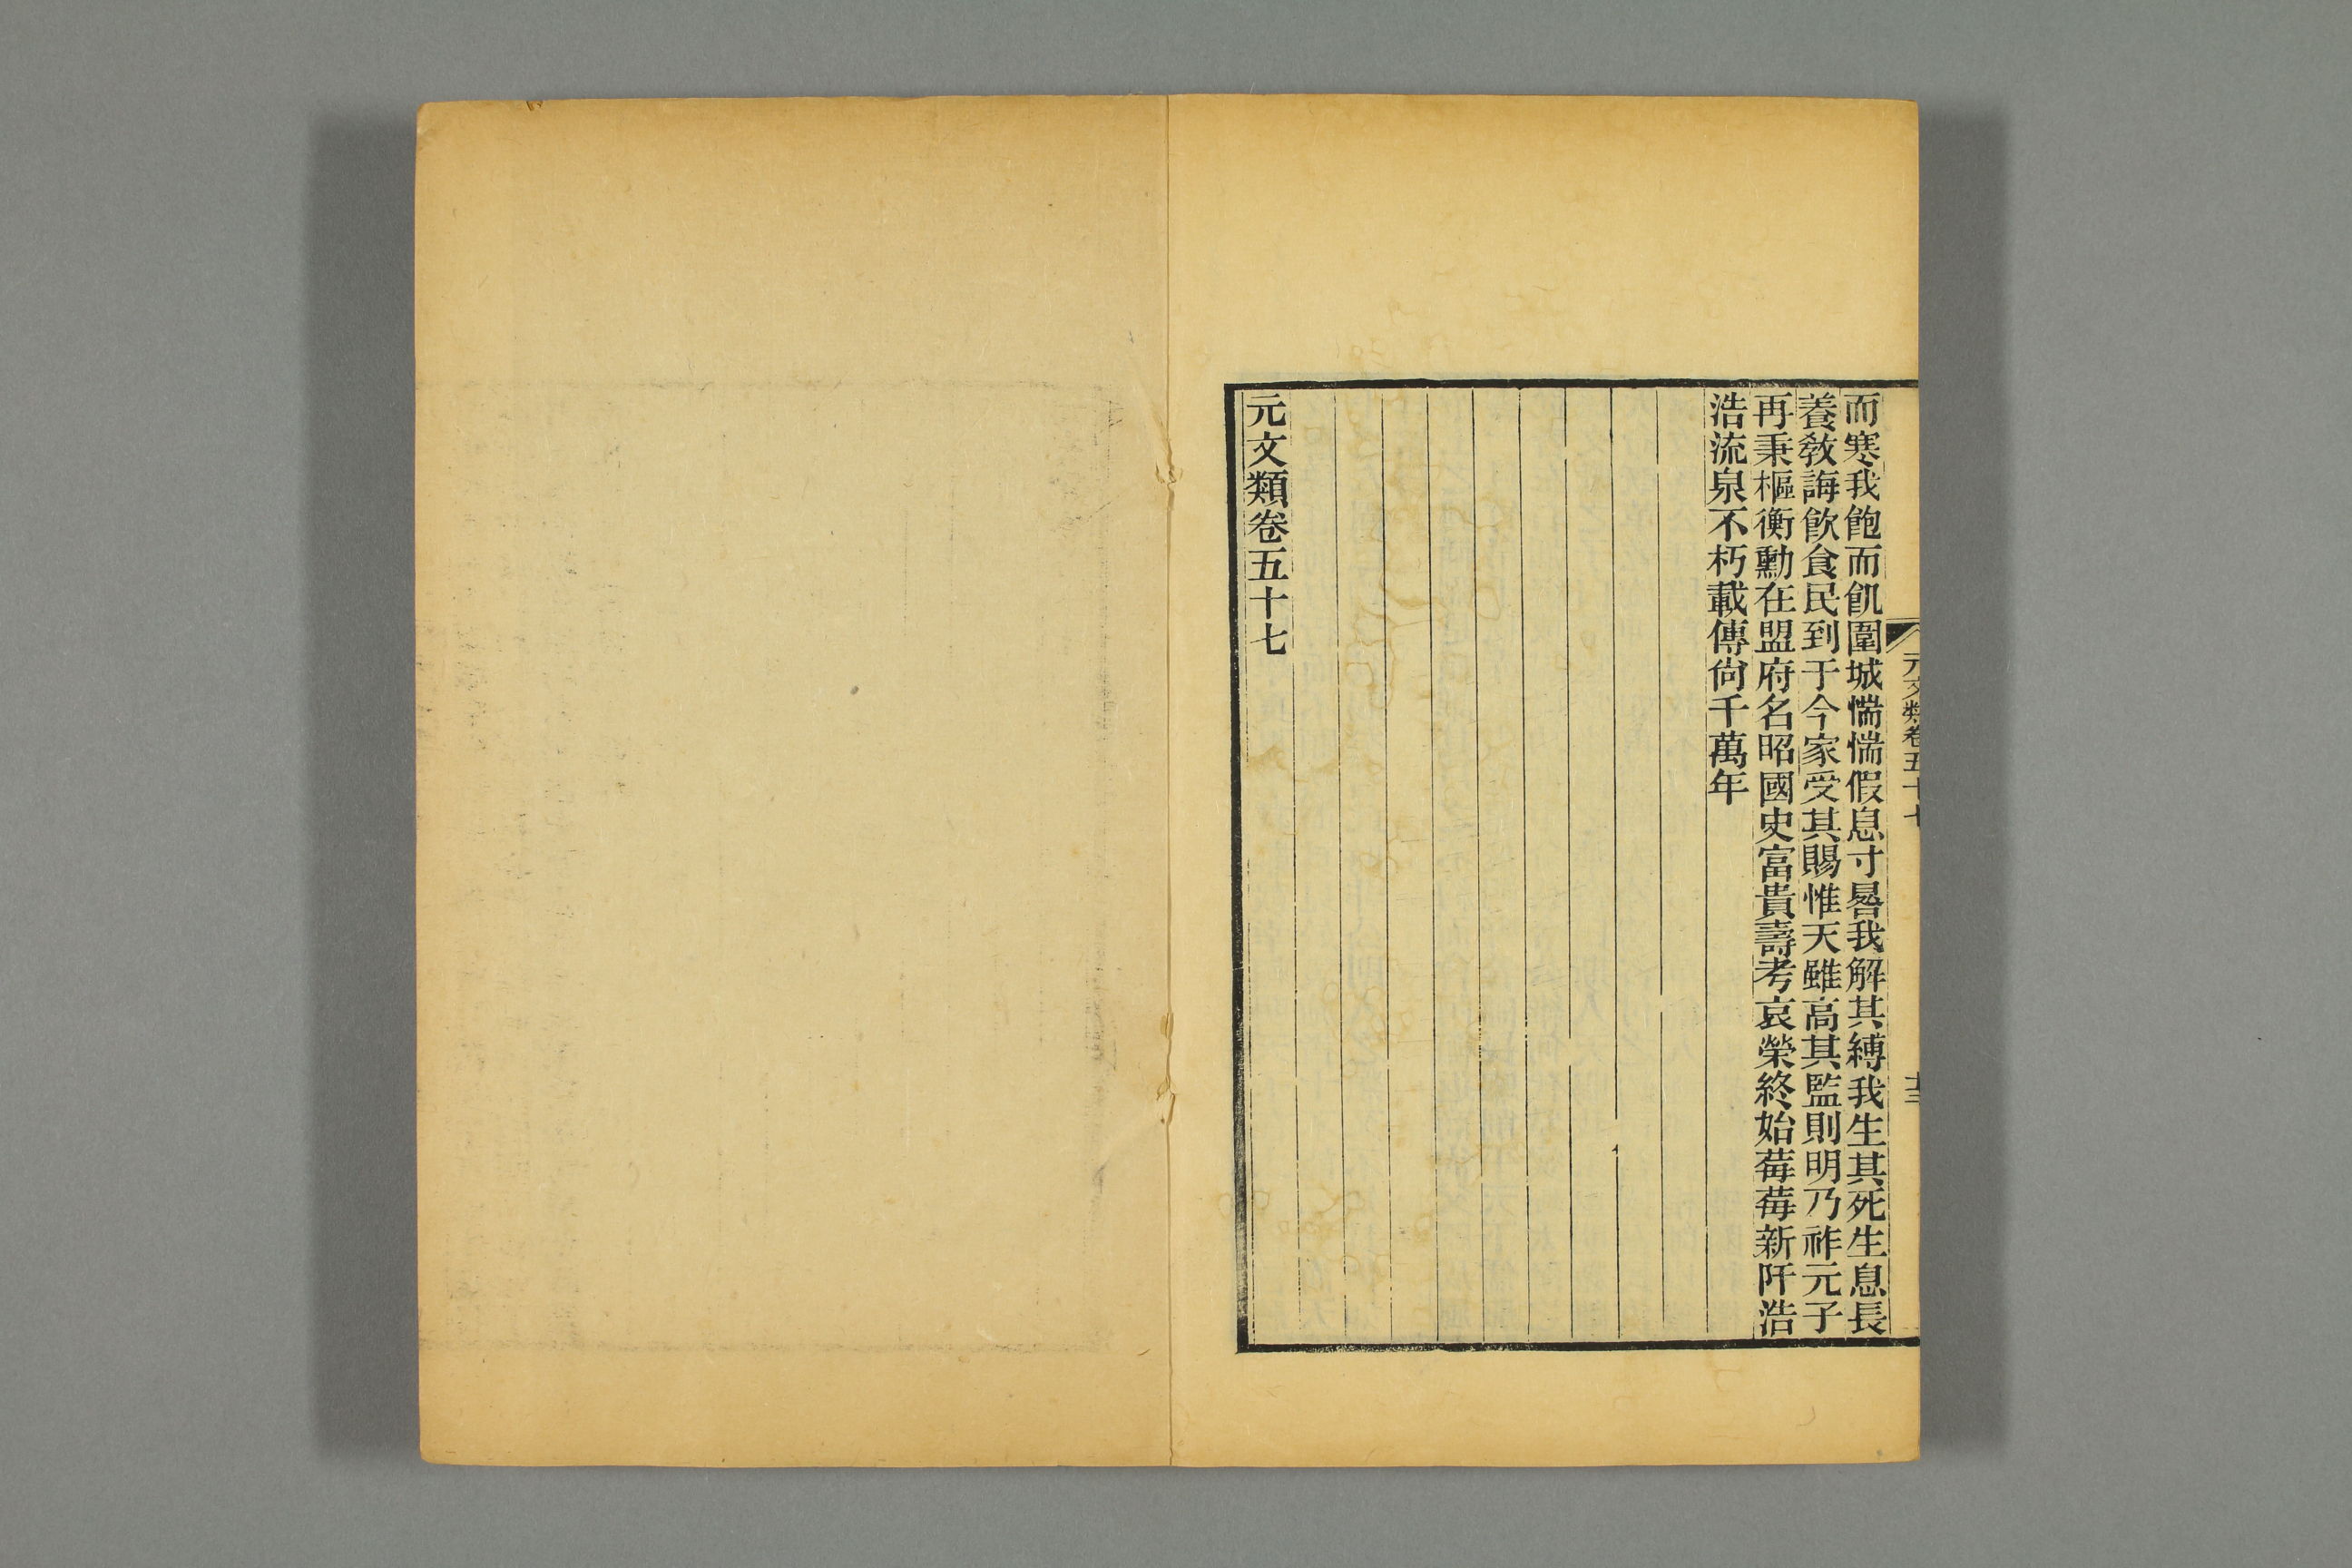 元文類卷五十七
而寒我飽而飢圍城惴惴假息寸晷我解其縛我生其死生息長
養敎誨飮食民到于今家受其賜惟天雖高其監則明乃祚元子
再秉樞衡勳在盟府名昭國史富貴壽考哀榮終始莓莓新阡浩
浩流泉不朽載傳尙千萬年
元文類卷五十七